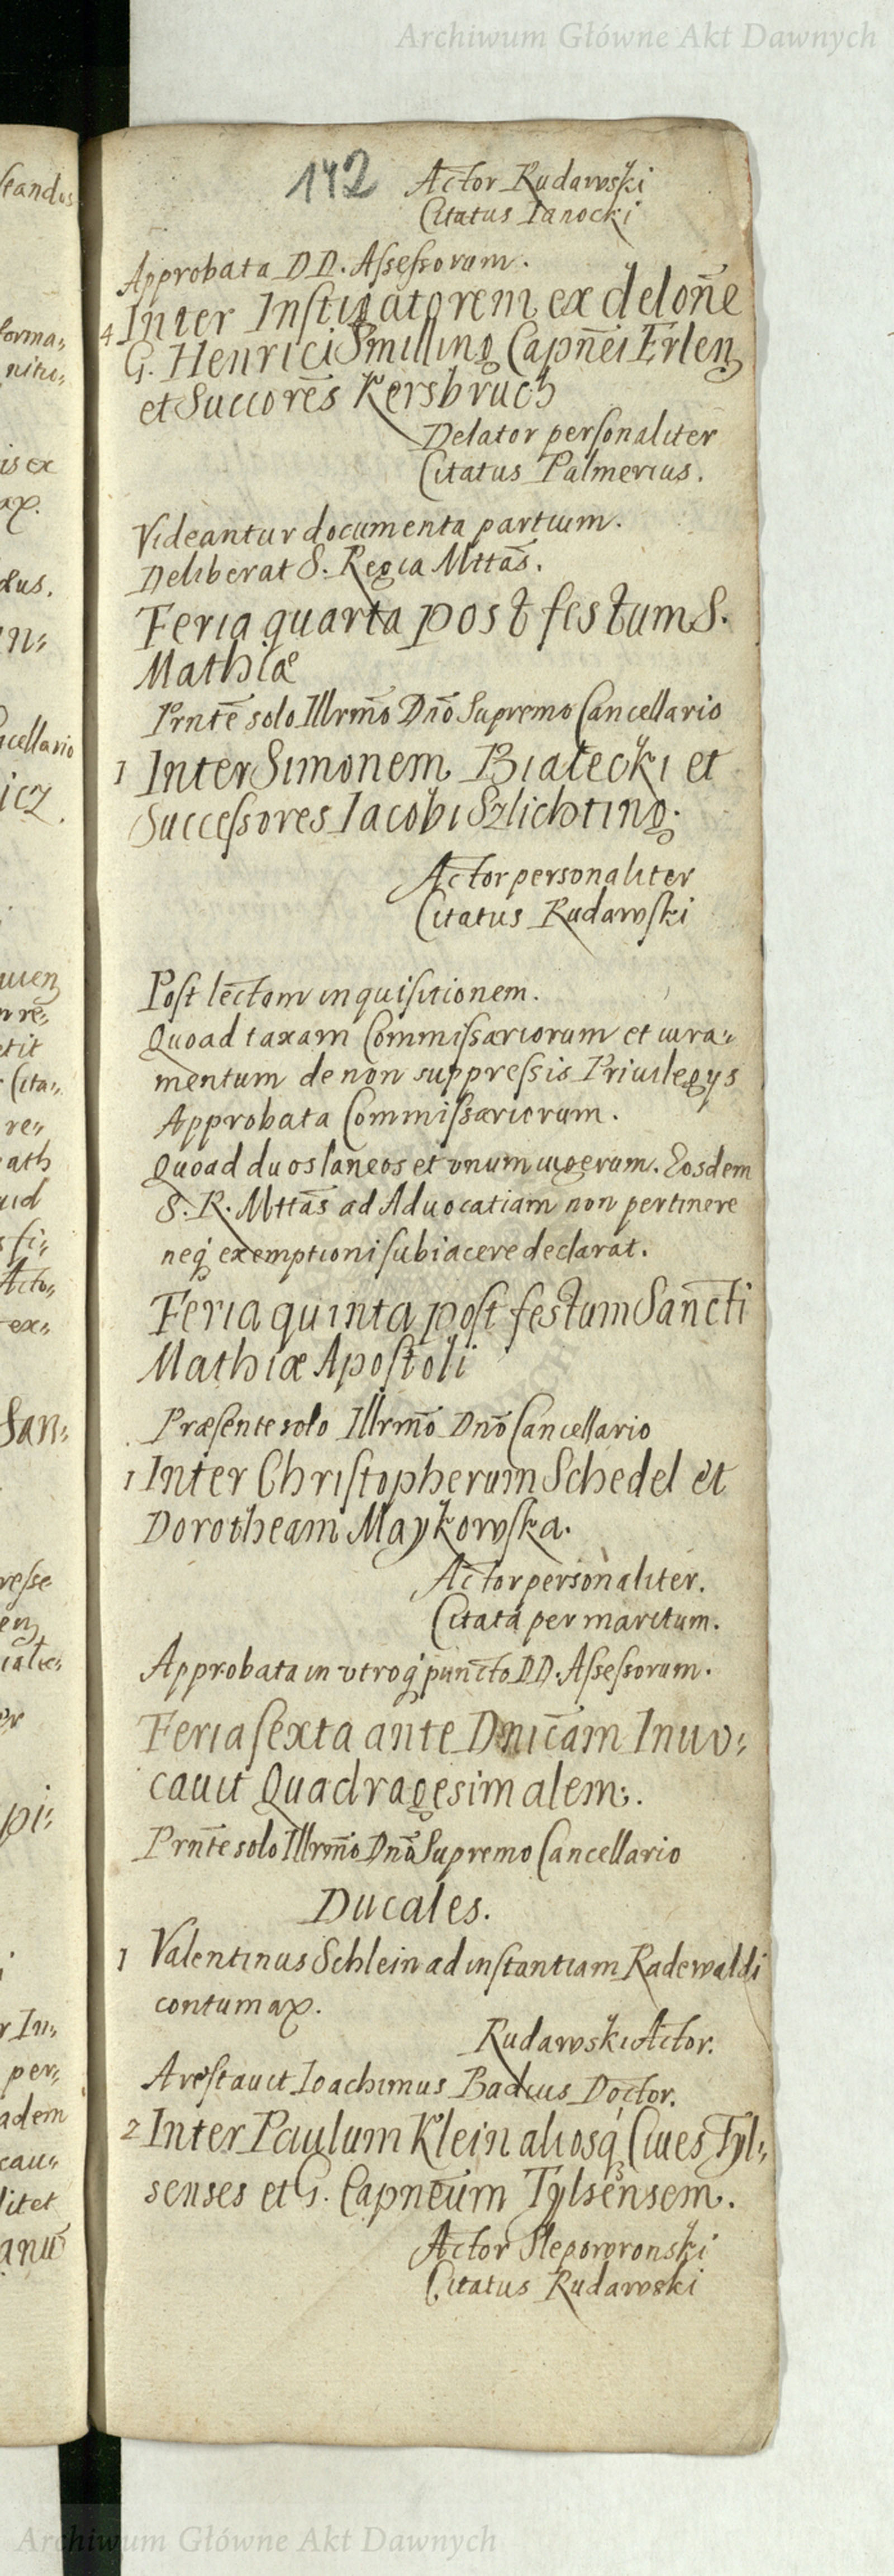 Archiwum Główne Akt Dawnych
142
Actor Rudawski
Citatus Ianocki
Approbata DD. Aſseſsorum.
4 Inter Inſtigatorem ex delon̄e
G. Henrici Smilling Capn̄ei Erleng
et Succorēs Kersbruch
Delator perſonaliter
Citatus Palmerius.
Videantur documenta partium.
Deliberat S. Regia Mttās.
Feria quarta post festum S.
Mathiæ
Prntē solo Illrm̄o Dnō Supremo Cancellario
1 Inter Simonem Białecki et
Succeſsores Iacobi Szlichting.
Actor personaliter
Citatus Rudawſki
Poſt lectam inquiſitionem.
Quoad taxam Commiſsariorum et iura:
mentum de non suppreſsis Priuilegys
Approbata Commiſsariorum.
Quoad duos laneos et vnum iugerum. Eosdem
S. R. Mttās ad Aduocatiam non pertinere
neq́ exemptioni ſubiacere declarat.
Feria quinta poſt feſtum Sancti
Mathiæ Apoſtoli
Præſente solo Illrm̄o Dnō Cancellario
1 Inter Chriſtopherum Schedel et
Dorotheam Maykowſka.
Actor personaliter.
Citata per maritum.
Approbata in vtroq́ puncto DD. Aſseſsorum.
Feria ſexta ante Dnicām Inuo:
cauit Quadragesimalem:.
Prntē solo Illrm̄o Dnō Supremo Cancellario
Ducales.
1 Valentinus Schlein ad inſtantiam Radewaldi
contumax.
Rudawski Actor.
Areſtauit Ioachimus Badius Doctor.
2 Inter Paulum Klein aliosq́ Ciues Tyl:
senses et G. Capnēum Tylsensem.
Actor Slepowronski
Citatus Rudawski
Archiwum Główne Akt Dawnych